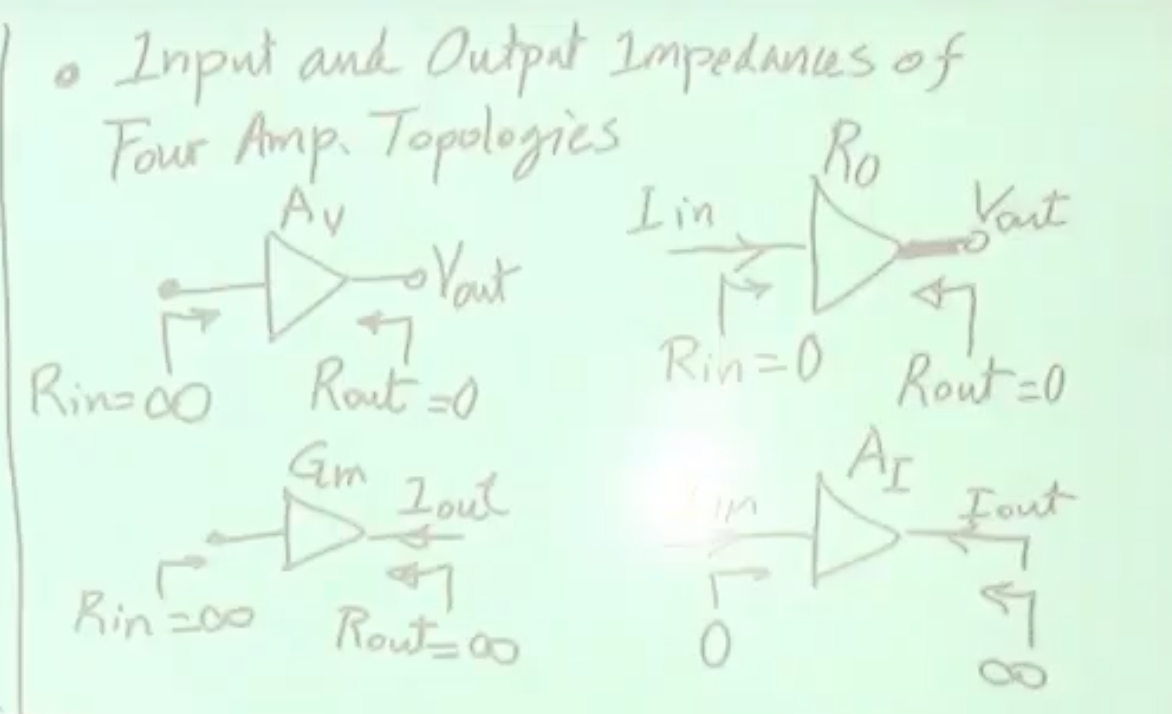 • Input and Output Impedances of
Four Amp. Topologies
Av
Vout
Rin=∞
Rout=0
Ro
Iin
Vout
Rin=0
Rout=0
Gm
Iout
Rin=∞
Rout=∞
AI
Iin
Iout
0
∞